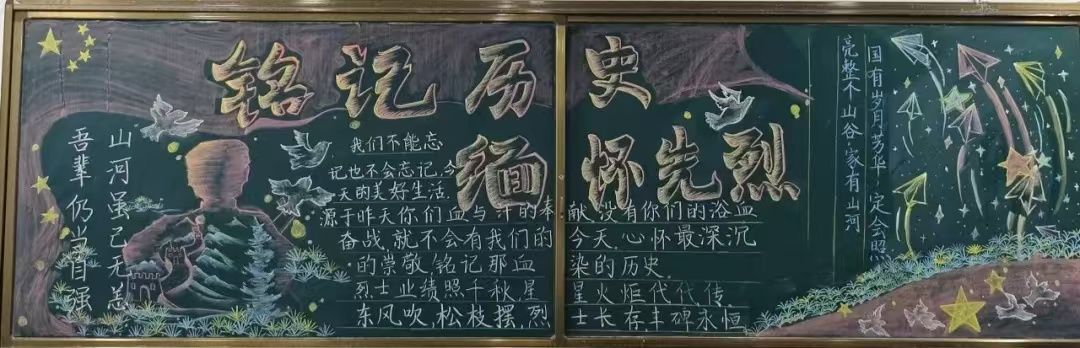 铭记历史
缅怀先烈
山河虽已无恙
吾辈仍当自强
我们不能忘
记也不会忘记,今
天的美好生活,
源于昨天你们血与汗的奉献,没有你们的浴血
奋战,就不会有我们的今天,心怀最深沉
的崇敬,铭记那血染的历史.
烈士业绩照千秋,星星火炬代代传,
东风吹,松枝摆,烈士长存丰碑永恒
国有岁月芳华,定会照
亮整个山谷·家有山河